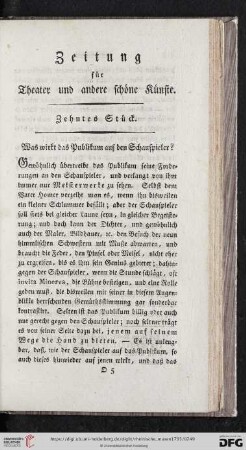 Zeitung
für
Theater und andere schöne Künste.
Zehntes Stück.
Was wirkt das Publikum auf den Schauspieler?
Gewöhnlich übertreibt das Publikum seine Forde-
rungen an den Schauspieler, und verlangt von ihm
immer nur Meisterwerke zu sehen. Selbst dem
Vater Homer vergeibt man es, wenn ihn bisweilen
ein kleiner Schlummer befällt; aber der Schauspieler
soll stets bei gleicher Laune seyn, in gleicher Begeiste-
rung; und doch kann der Dichter, und gewöhnlich
auch der Maler, Bildhauer, u. den Besuch der neun
himmlischen Schwestern mit Muße abwarten, und
braucht die Feder, den Pinsel oder Meisel, nicht eher
zu ergreifen, bis es ihm sein Genius gebietet; dahin-
gegen der Schauspieler, wenn die Stunde schlägt,
invita Minerva, die Bühne besteigen, und eine Rolle
geben muß, die bisweilen mit seiner in diesem Augen-
blicke herrschenden Gemüthsstimmung gar sonderbar
kontrastirt. Selten ist das Publikum billig oder auch
nur gerecht gegen den Schauspieler; noch seltner trägt
es von seiner Seite dazu bei, jenem auf seinem
Wege die Hand zu bieten. — Es ist unleug-
bar, daß, wie der Schauspieler auf das Publikum, so
auch dieses hinwieder auf jenen wirkt, und daß das
D 5